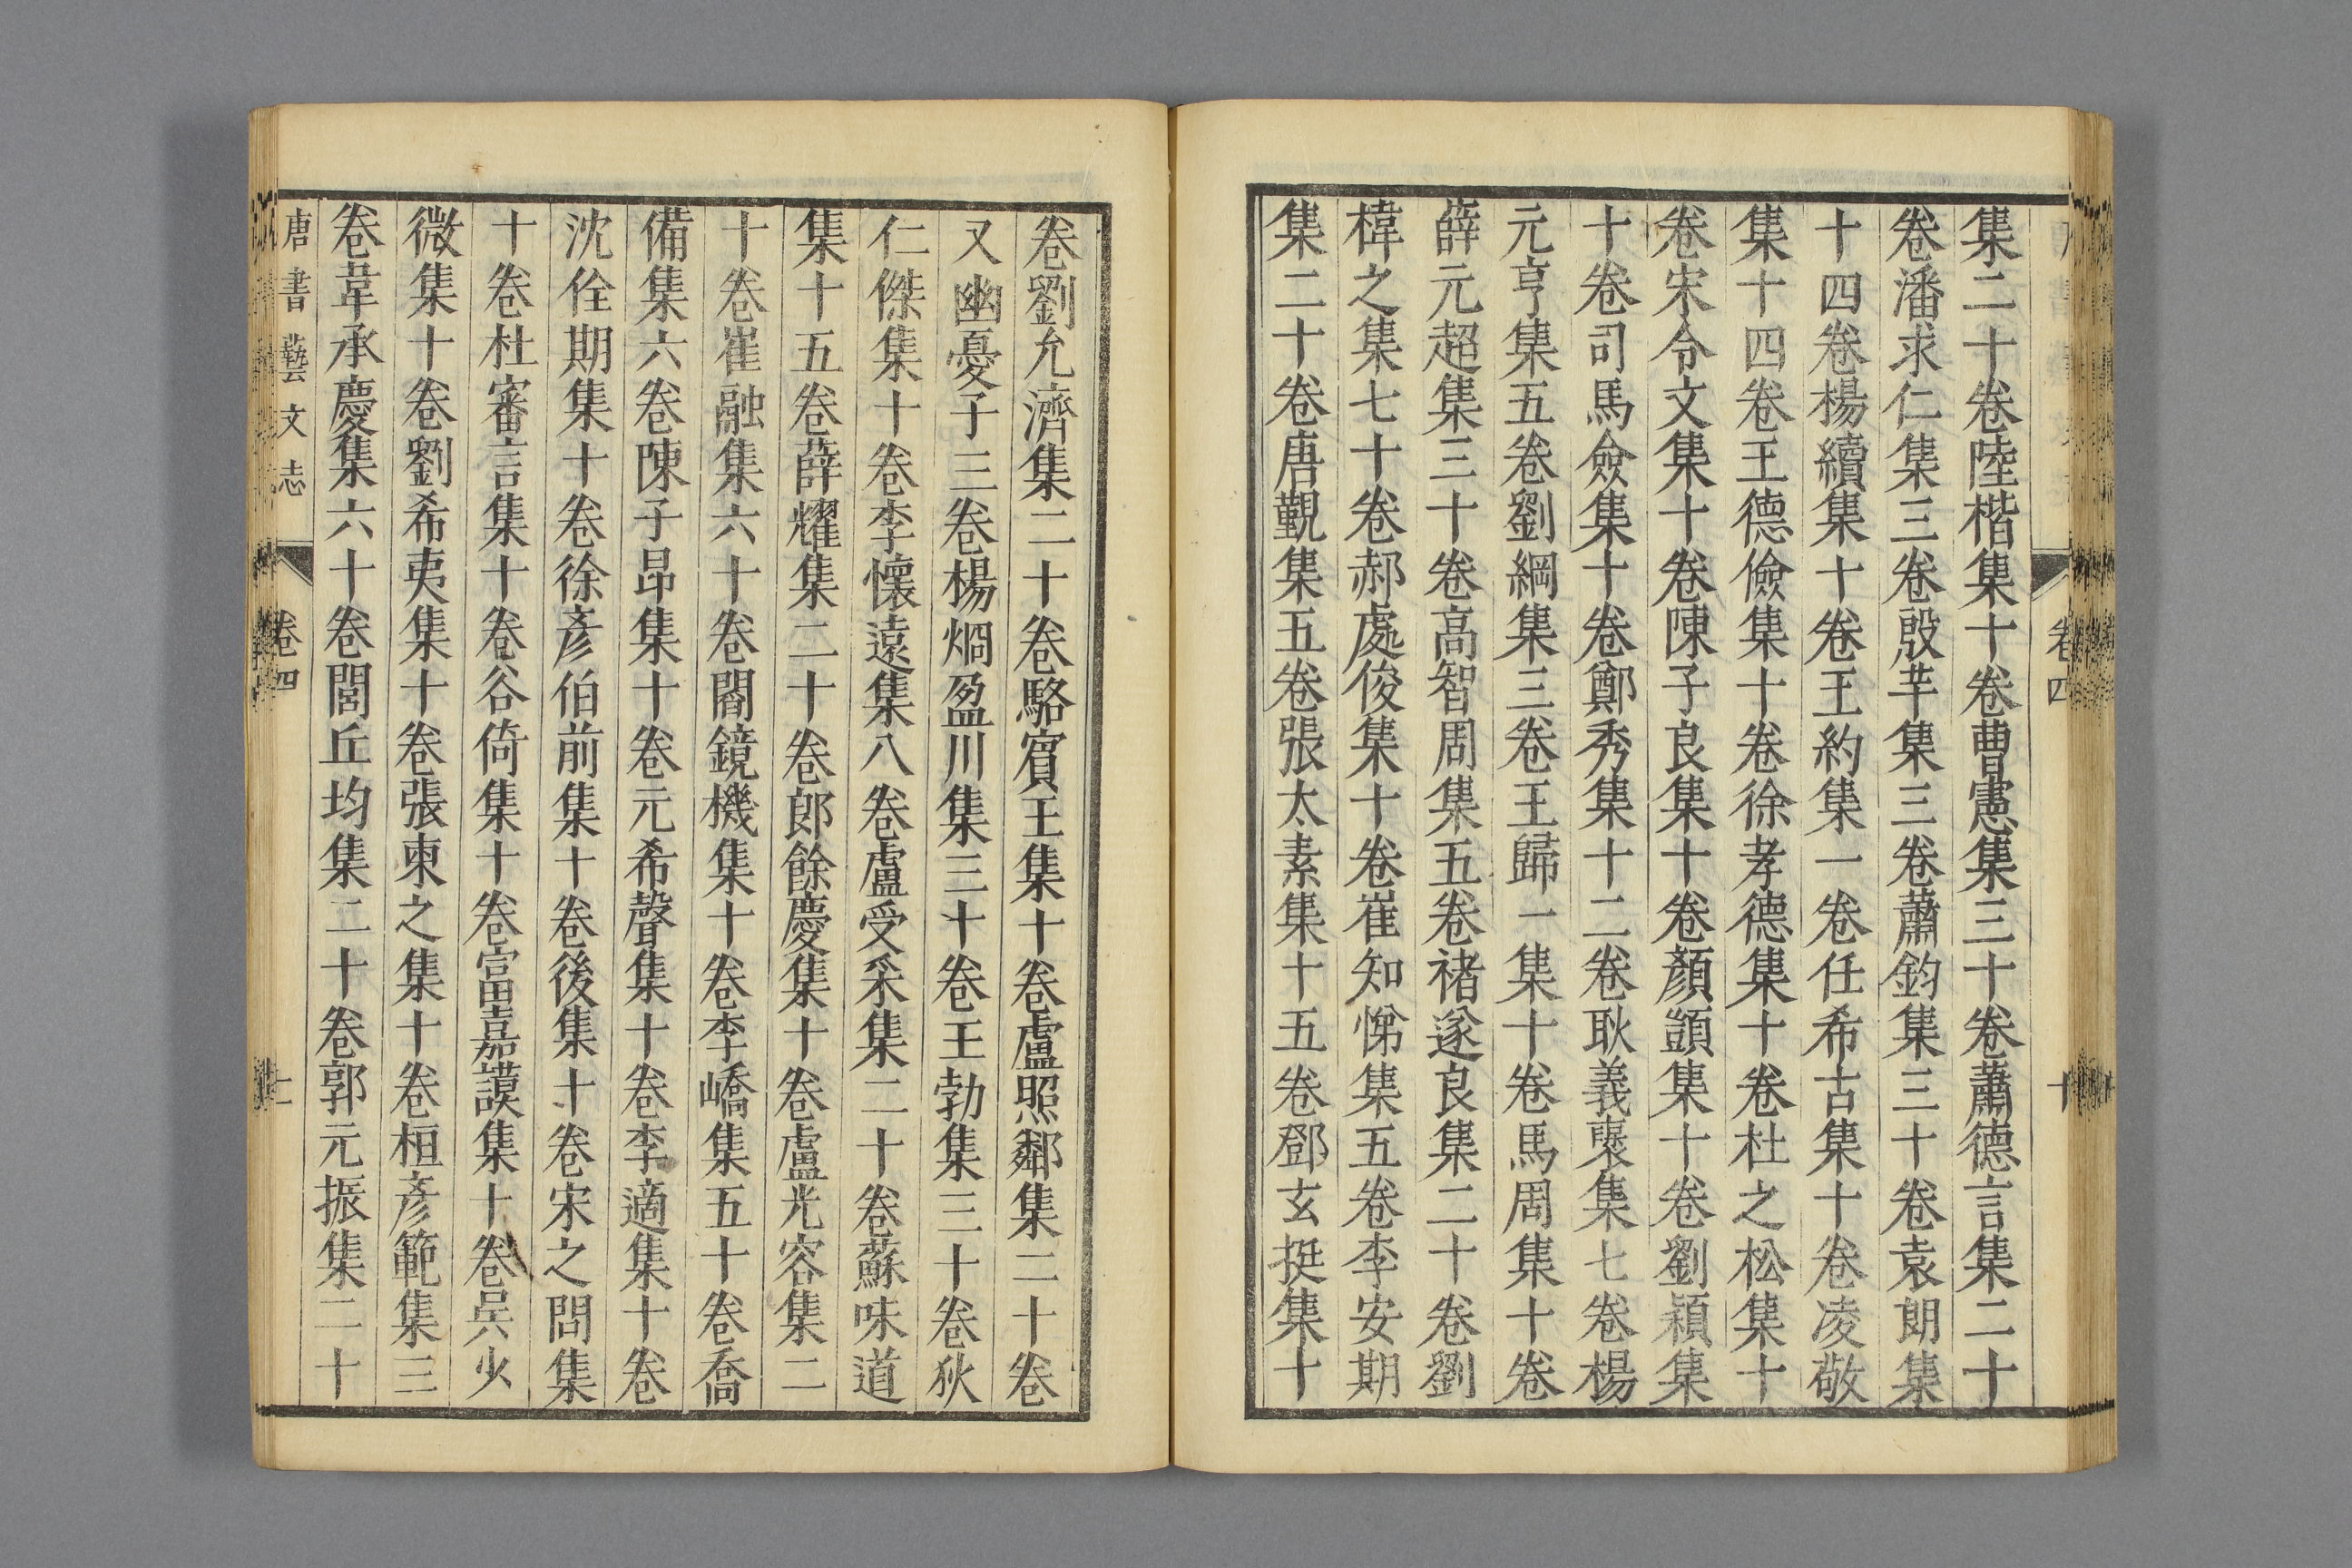 卷四
十
集二十卷陸楷集十卷曹憲集三十卷蕭德言集二十
卷潘求仁集三卷殷芊集三卷蕭鈞集三十卷袁朗集
十四卷楊續集十卷王約集一卷任希古集十卷凌敬
集十四卷王德儉集十卷徐孝德集十卷杜之松集十
卷宋令文集十卷陳子良集十卷顏顗集十卷劉穎集
十卷司馬僉集十卷鄭秀集十二卷耿義襃集七卷楊
元亨集五卷劉綱集三卷王歸一集十卷馬周集十卷
薛元超集三十卷高智周集五卷褚遂良集二十卷劉
禕之集七十卷郝處俊集十卷崔知悌集五卷李安期
集二十卷唐覲集五卷張太素集十五卷鄧玄挺集十
卷劉允濟集二十卷駱賓王集十卷盧照鄰集二十卷
又幽憂子三卷楊烱盈川集三十卷王勃集三十卷狄
仁傑集十卷李懷遠集八卷盧受采集二十卷蘇味道
集十五卷薛耀集二十卷郎餘慶集十卷盧光容集二
十卷崔融集六十卷閻鏡機集十卷李嶠集五十卷喬
備集六卷陳子昂集十卷元希聲集十卷李適集十卷
沈佺期集十卷徐彥伯前集十卷後集十卷宋之問集
十卷杜審言集十卷谷倚集十卷富嘉謨集十卷吳少
微集十卷劉希夷集十卷張柬之集十卷桓彥範集三
卷韋承慶集六十卷閭丘均集二十卷郭元振集二十
唐書藝文志
卷四